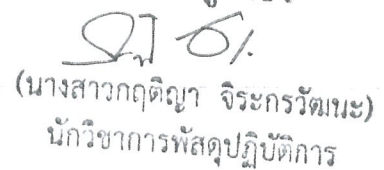 (นางสาวกฤติญา จิระกรวัฒนะ)
นักวิชาการพัสดุปฏิบัติการ